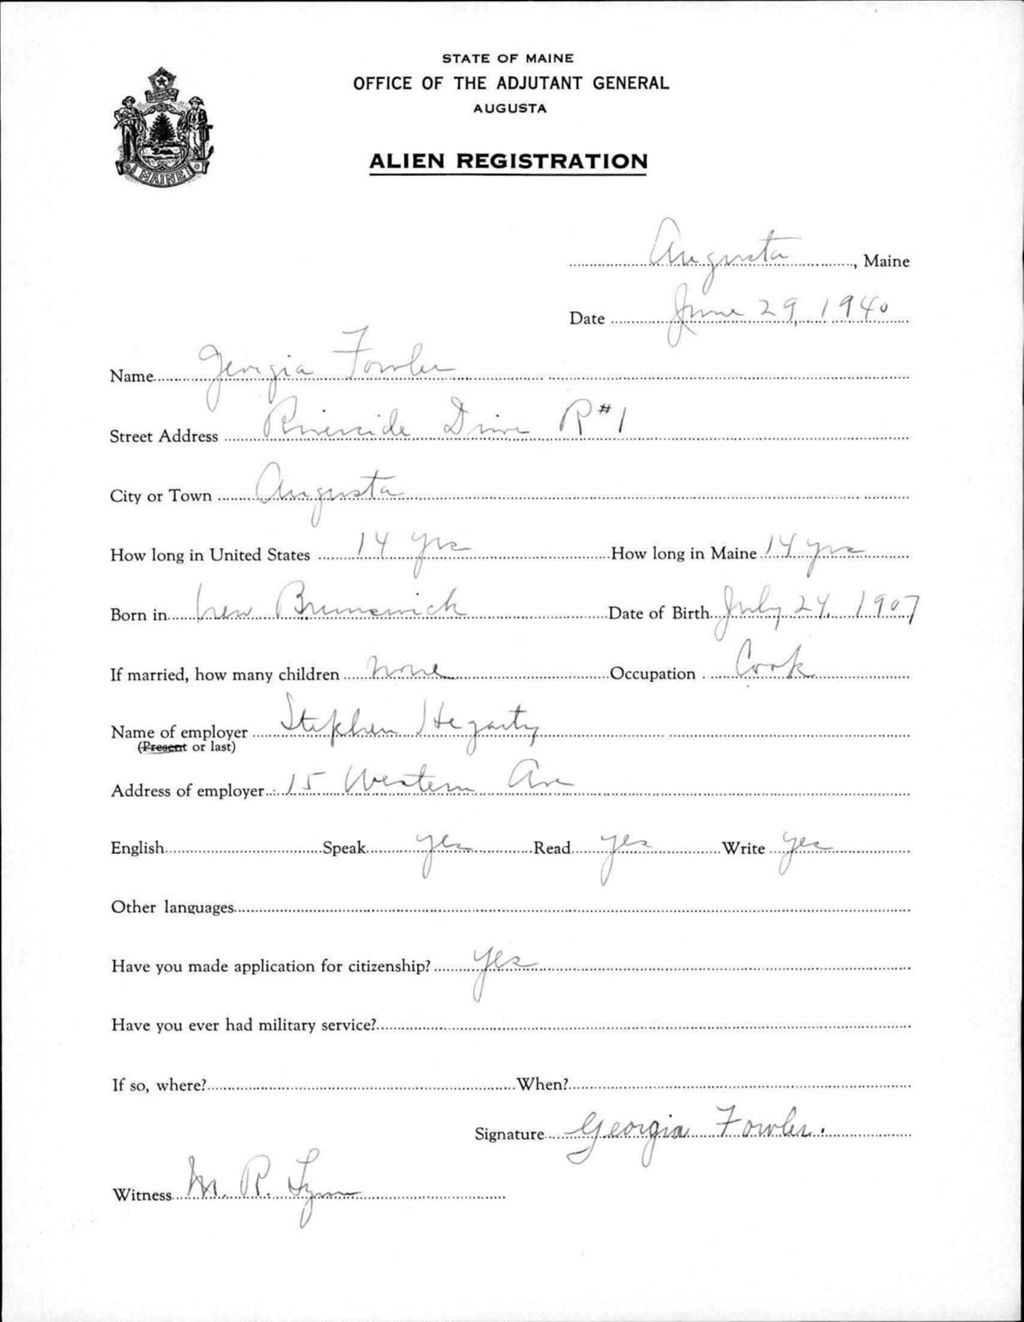 STATE OF MAINE
OFFICE OF THE ADJUTANT GENERAL
AUGUSTA
ALIEN REGISTRATION
MAINE
Augusta, Maine
Date June 29, 1940
Name Georgia Fowler
Street Address Riverside Drive R #1
City or Town Augusta
How long in United States 14 yrs How long in Maine 14 yrs
Born in New Brunswick Date of Birth July 24, 1907
If married, how many children None Occupation Cook
Name of employer Stephen Hegarty
(Present or last)
Address of employer 15 Western Ave
English Speak yes Read yes Write yes
Other languages
Have you made application for citizenship? yes
Have you ever had military service?
If so, where? When?
Signature Georgia Fowler.
Witness M. R. Lynn